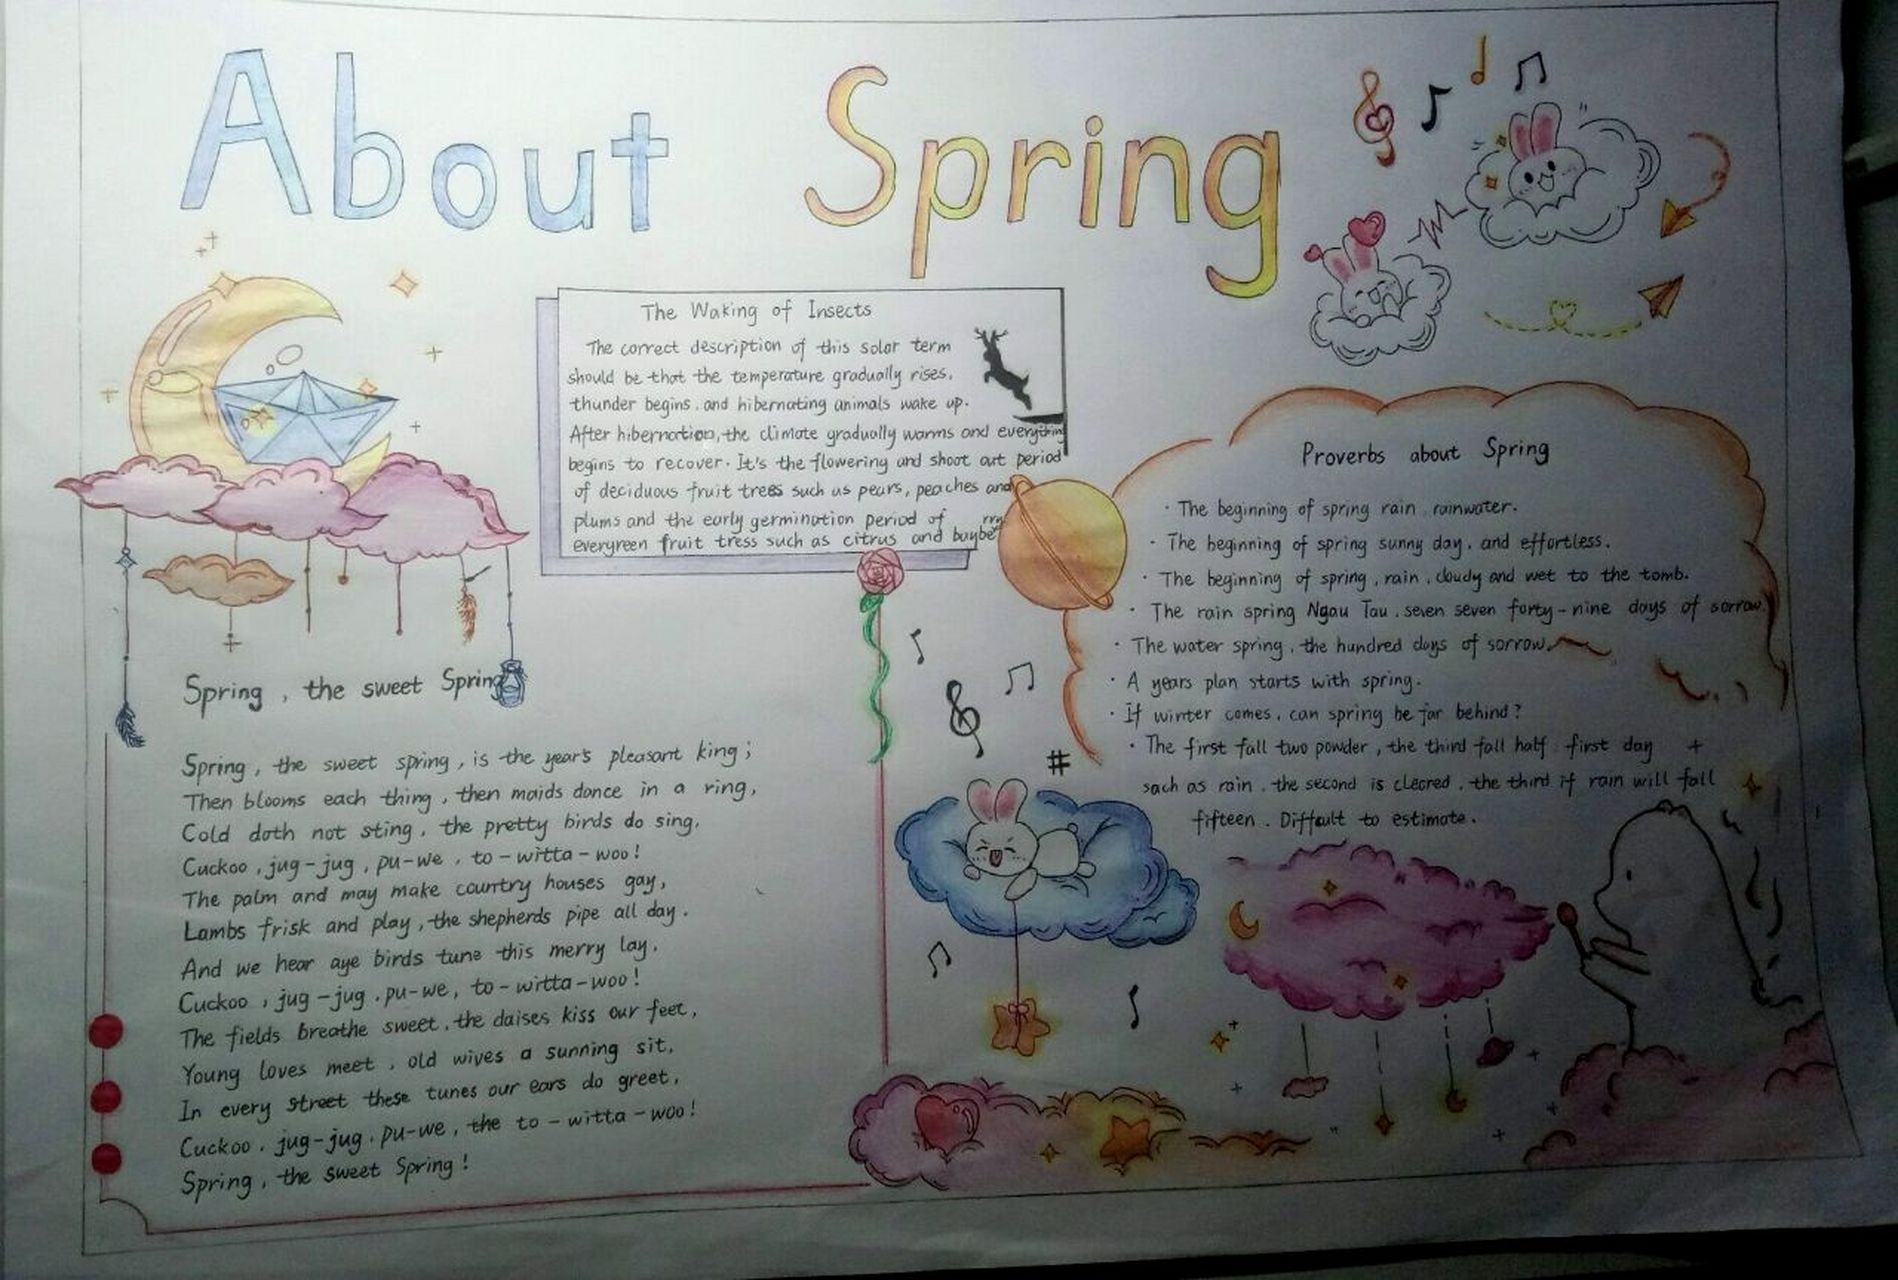 About Spring
The Waking of Insects
The correct description of this solar term
should be that the temperature gradually rises,
thunder begins, and hibernating animals wake up.
After hibernation, the climate gradually warms and everything
begins to recover. It's the flowering and shoot out period
of deciduous fruit trees such as pears, peaches and
plums and the early germination period of
evergreen fruit tress such as citrus and baybe
rry
Spring, the sweet Spring
Spring, the sweet spring, is the year's pleasant king;
Then blooms each thing, then maids dance in a ring,
Cold doth not sting, the pretty birds do sing,
Cuckoo, jug-jug, pu-we, to-witta-woo!
The palm and may make country houses gay,
Lambs frisk and play, the shepherds pipe all day.
And we hear aye birds tune this merry lay,
Cuckoo, jug-jug, pu-we, to-witta-woo!
The fields breathe sweet, the daises kiss our feet,
Young loves meet, old wives a sunning sit,
In every street these tunes our ears do greet,
Cuckoo, jug-jug, pu-we, the to-witta-woo!
Spring, the sweet Spring!
Proverbs about Spring
· The beginning of spring rain, rainwater.
· The beginning of spring sunny day, and effortless.
· The beginning of spring, rain, cloudy and wet to the tomb.
· The rain spring Ngau Tau, seven seven forty-nine days of sorrow.
· The water spring, the hundred days of sorrow.
· A years plan starts with spring.
· If winter comes, can spring be far behind?
· The first fall two powder, the third fall half: first day
sach as rain, the second is cleared, the third if rain will fall
fifteen. Difficult to estimate.